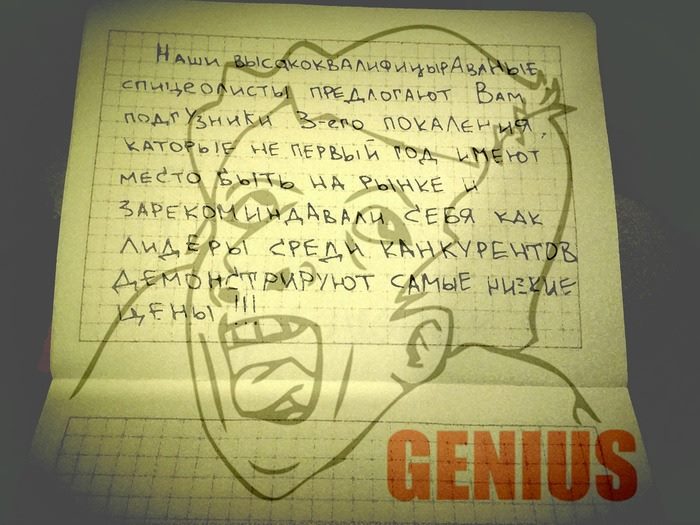 Наши высококвалифицыраваные
спицеолисты предлогают Вам
подгузники 3-его покаления,
каторые не первый год имеют
место быть на рынке и
зарекоминдавали себя как
лидеры среди канкурентов
демонстрируют самые низкие
цены !!!
GENIUS